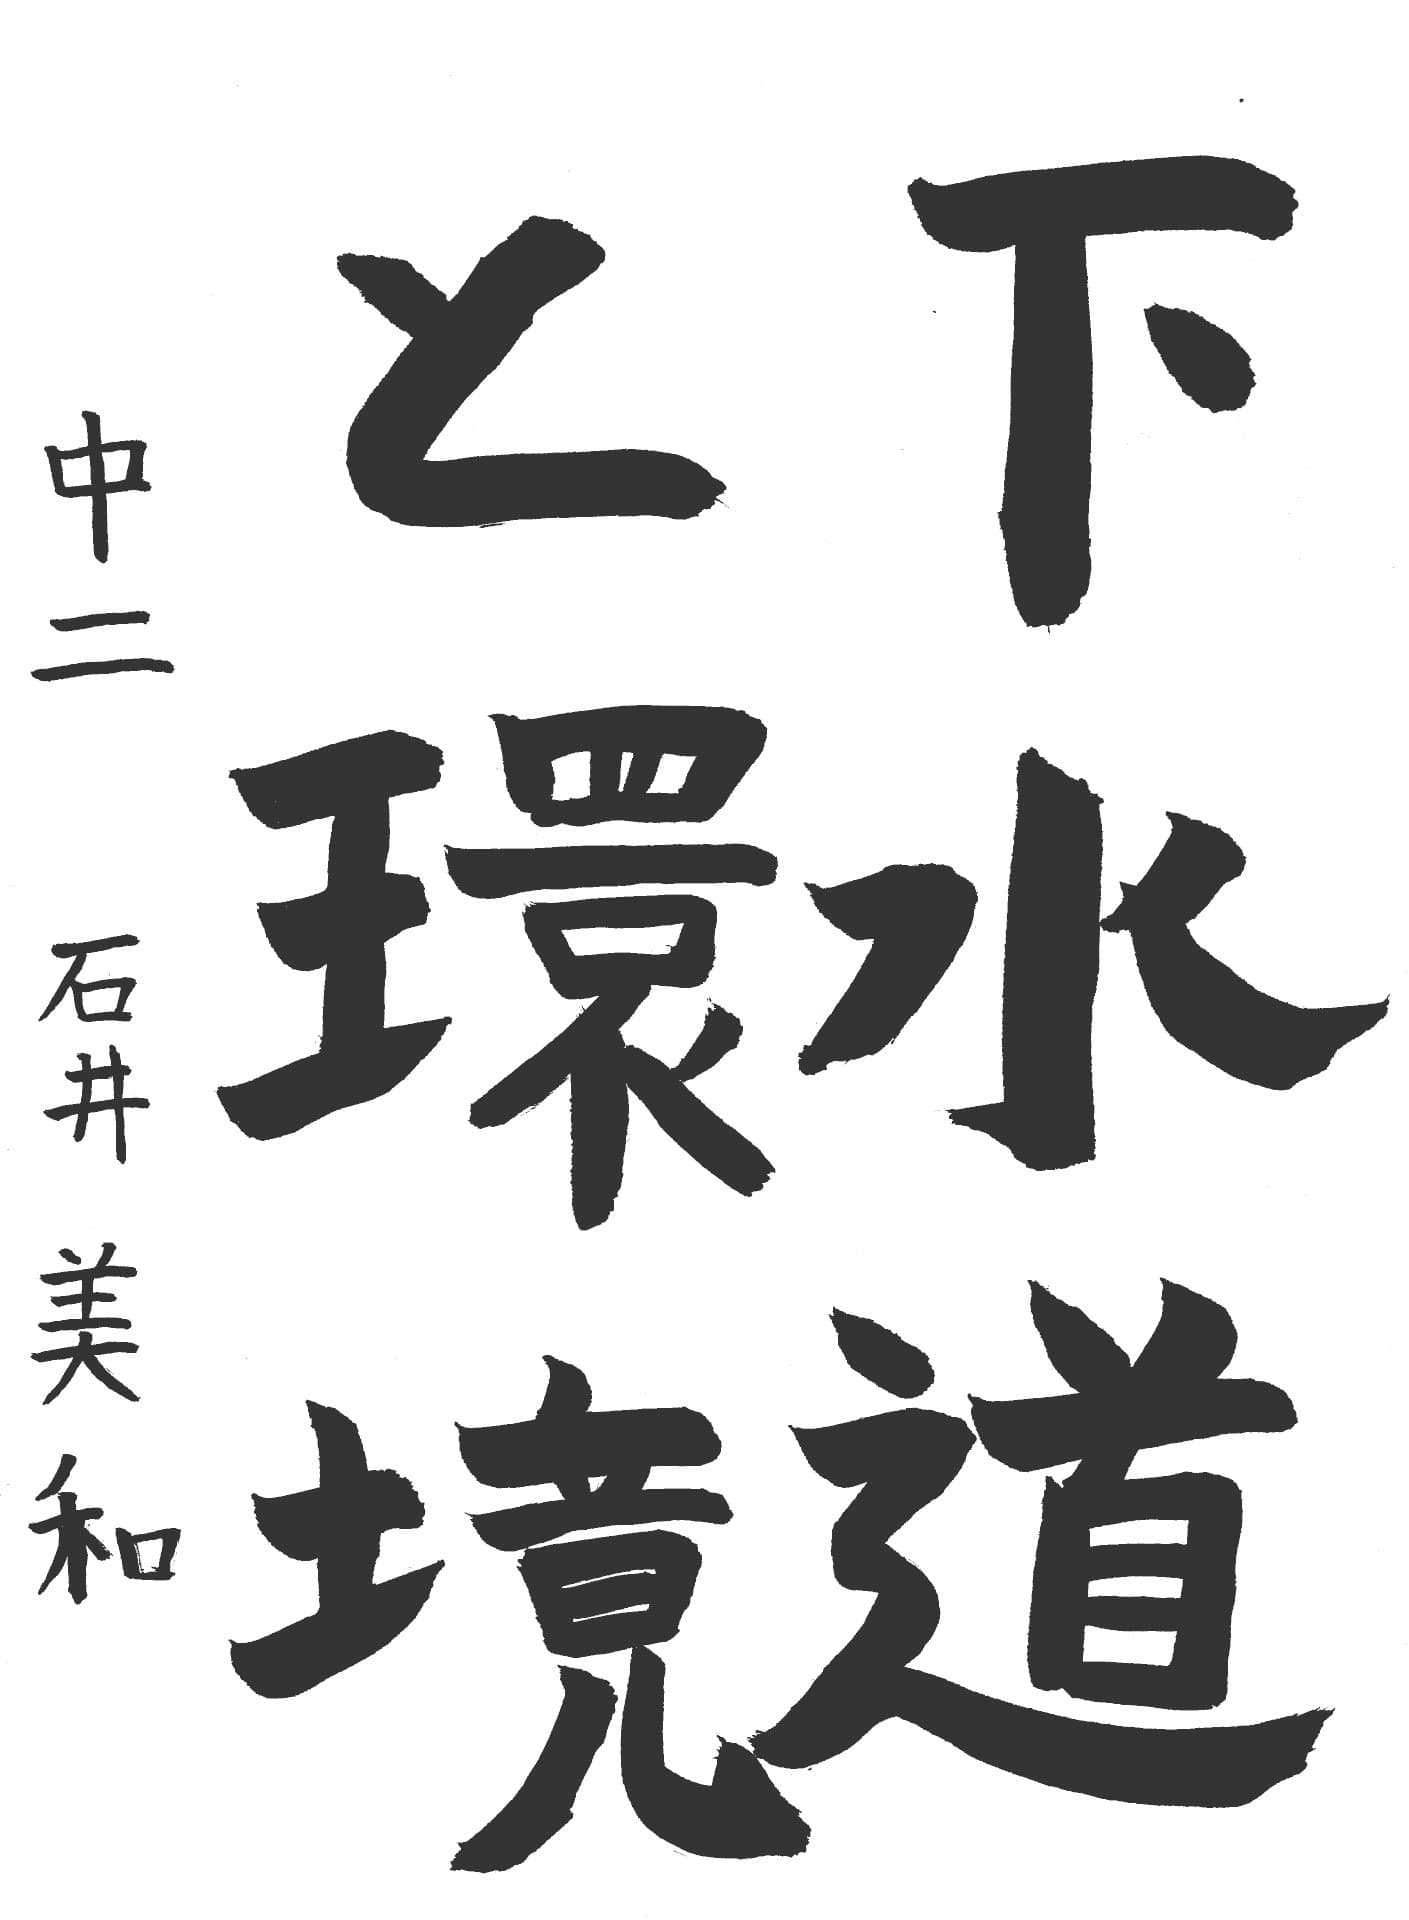 下水道
と環境
中二 石井美和